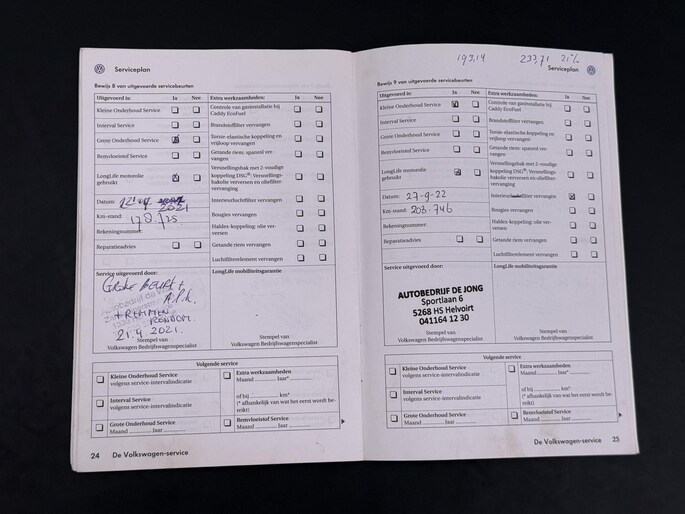 Serviceplan
Bewijs 8 van uitgevoerde servicebeurten
Uitgevoerd is: Ja Nee
Kleine Onderhoud Service
Interval Service
Grote Onderhoud Service
Remvloeistof Service
LongLife motorolie
gebruikt
Datum: 2021
Km-stand:
Rekeningnummer:
Reparatieadvies
Extra werkzaamheden: Ja Nee
Controle van gasinstallatie bij
Caddy EcoFuel
Brandstoffilter vervangen
Torsie-elastische koppeling en
vrijloop vervangen
Getande riem: spanrol ver-
vangen
Versnellingsbak met 2-voudige
koppeling DSG®: Versnellings-
bakolie verversen en oliefilter-
vervanging
Interieurluchtfilter vervangen
Bougies vervangen
Haldex-koppeling: olie ver-
versen
Getande riem vervangen
Luchtfilterelement vervangen
Service uitgevoerd door:
Grote Beurt +
+ REMMEN
RONDOM
21.4.2021.
Stempel van
Volkswagen Bedrijfswagenspecialist
LongLife mobiliteitsgarantie
Stempel van
Volkswagen Bedrijfswagenspecialist
Volgende service
Kleine Onderhoud Service
volgens service-intervalindicatie
Interval Service
volgens service-intervalindicatie
Grote Onderhoud Service
Maand Jaar
Extra werkzaamheden
Maand Jaar*
of bij km*
(* afhankelijk van wat het eerst wordt be-
reikt)
Remvloeistof Service
Maand Jaar
24 De Volkswagen-service
193,14 233,71 21%
Serviceplan
Bewijs 9 van uitgevoerde servicebeurten
Uitgevoerd is: Ja Nee
Kleine Onderhoud Service
Interval Service
Grote Onderhoud Service
Remvloeistof Service
LongLife motorolie
gebruikt
Datum: 27-9-22
Km-stand: 203.746
Rekeningnummer:
Reparatieadvies
Extra werkzaamheden: Ja Nee
Controle van gasinstallatie bij
Caddy EcoFuel
Brandstoffilter vervangen
Torsie-elastische koppeling en
vrijloop vervangen
Getande riem: spanrol ver-
vangen
Versnellingsbak met 2-voudige
koppeling DSG®: Versnellings-
bakolie verversen en oliefilter-
vervanging
Interieurluchtfilter vervangen
Bougies vervangen
Haldex-koppeling: olie ver-
versen
Getande riem vervangen
Luchtfilterelement vervangen
Service uitgevoerd door:
AUTOBEDRIJF DE JONG
Sportlaan 6
5268 HS Helvoirt
041164 12 30
Stempel van
Volkswagen Bedrijfswagenspecialist
LongLife mobiliteitsgarantie
Stempel van
Volkswagen Bedrijfswagenspecialist
Volgende service
Kleine Onderhoud Service
volgens service-intervalindicatie
Interval Service
volgens service-intervalindicatie
Grote Onderhoud Service
Maand Jaar
Extra werkzaamheden
Maand Jaar*
of bij km*
(* afhankelijk van wat het eerst wordt be-
reikt)
Remvloeistof Service
Maand Jaar
De Volkswagen-service 25